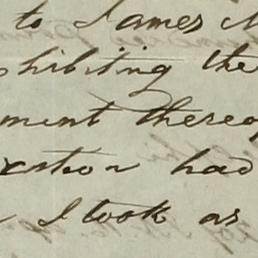 to James
hibiting the
ment thereo
had
I took as